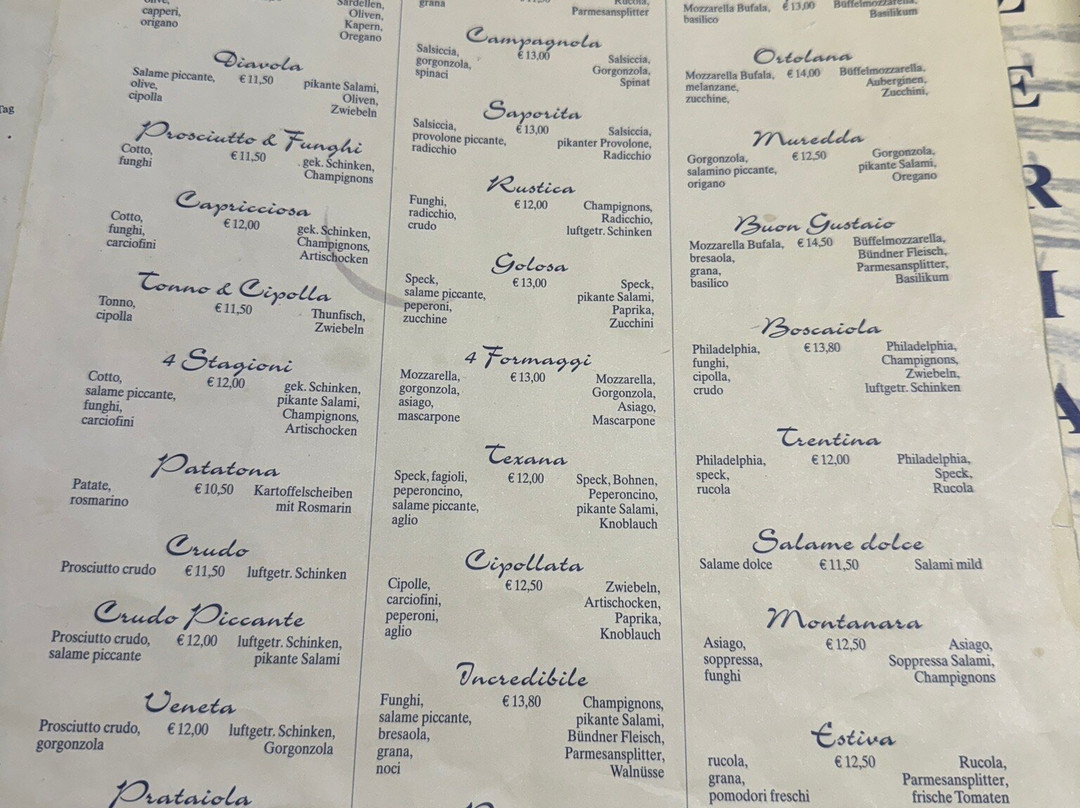 capperi,
origano
Sardellen,
Oliven,
Kapern,
Oregano
Diavola
Salame piccante, € 11,50 pikante Salami,
olive, Oliven,
cipolla Zwiebeln
Prosciutto & Funghi
Cotto, € 11,50 gek. Schinken,
funghi Champignons
Capricciosa
Cotto, € 12,00 gek. Schinken,
funghi, Champignons,
carciofini Artischocken
Tonno & Cipolla
Tonno, € 11,50 Thunfisch,
cipolla Zwiebeln
4 Stagioni
Cotto, € 12,00 gek. Schinken,
salame piccante, pikante Salami,
funghi, Champignons,
carciofini Artischocken
Patatona
Patate, € 10,50 Kartoffelscheiben
rosmarino mit Rosmarin
Crudo
Prosciutto crudo € 11,50 luftgetr. Schinken
Crudo Piccante
Prosciutto crudo, € 12,00 luftgetr. Schinken,
salame piccante pikante Salami
Veneta
Prosciutto crudo, € 12,00 luftgetr. Schinken,
gorgonzola Gorgonzola
Prataiola
grana
Parmesansplitter
Campagnola
Salsiccia, € 13,00 Salsiccia,
gorgonzola, Gorgonzola,
spinaci Spinat
Saporita
Salsiccia, € 13,00 Salsiccia,
provolone piccante, pikanter Provolone,
radicchio Radicchio
Rustica
Funghi, € 12,00 Champignons,
radicchio, Radicchio,
crudo luftgetr. Schinken
Golosa
Speck, € 13,00 Speck,
salame piccante, pikante Salami,
peperoni, Paprika,
zucchine Zucchini
4 Formaggi
Mozzarella, € 13,00 Mozzarella,
gorgonzola, Gorgonzola,
asiago, Asiago,
mascarpone Mascarpone
Texana
Speck, fagioli, € 12,00 Speck, Bohnen,
peperoncino, Peperoncino,
salame piccante, pikante Salami,
aglio Knoblauch
Cipollata
Cipolle, € 12,50 Zwiebeln,
carciofini, Artischocken,
peperoni, Paprika,
aglio Knoblauch
Incredibile
Funghi, € 13,80 Champignons,
salame piccante, pikante Salami,
bresaola, Bündner Fleisch,
grana, Parmesansplitter,
noci Walnüsse
Mozzarella Bufala, € 13,00 Büffelmozzarella,
basilico Basilikum
Ortolana
Mozzarella Bufala, € 14,00 Büffelmozzarella,
melanzane, Auberginen,
zucchine, Zucchini,
Muredda
Gorgonzola, € 12,50 Gorgonzola,
salamino piccante, pikante Salami,
origano Oregano
Buon Gustaio
Mozzarella Bufala, € 14,50 Büffelmozzarella,
bresaola, Bündner Fleisch,
grana, Parmesansplitter,
basilico Basilikum
Boscaiola
Philadelphia, € 13,80 Philadelphia,
funghi, Champignons,
cipolla, Zwiebeln,
crudo luftgetr. Schinken
Trentina
Philadelphia, € 12,00 Philadelphia,
speck, Speck,
rucola Rucola
Salame dolce
Salame dolce € 11,50 Salami mild
Montanara
Asiago, € 12,50 Asiago,
soppressa, Soppressa Salami,
funghi Champignons
Estiva
rucola, € 12,50 Rucola,
grana, Parmesansplitter,
pomodori freschi frische Tomaten
E
R
I
A